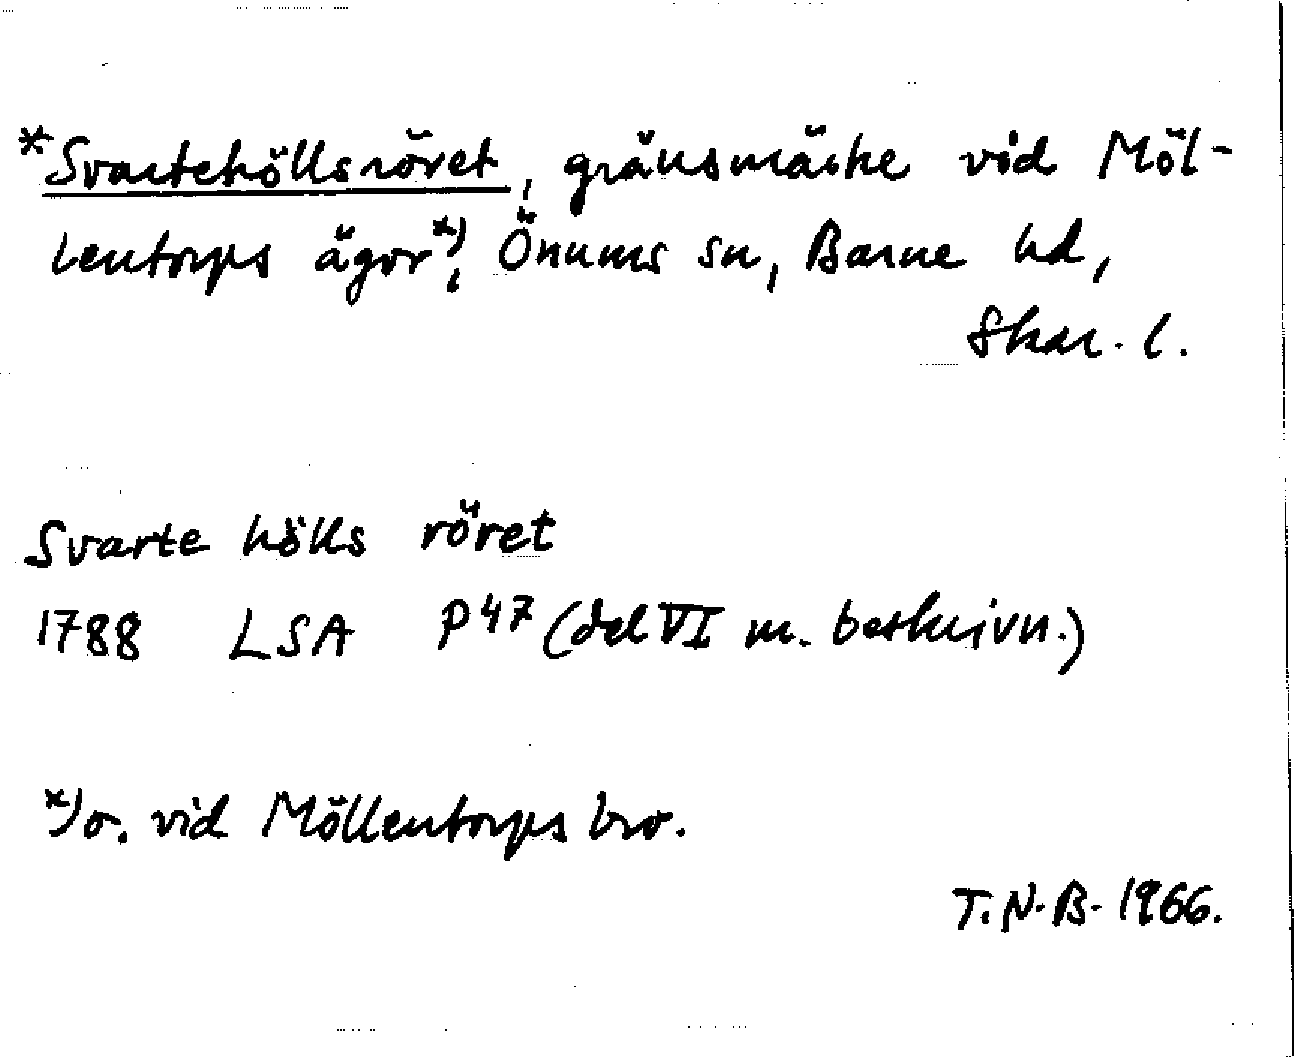 *Svartehöllsröret, gränsmärke vid Möl-
lentorps ägor*), Önums sn, Barne hd,
Skar. l.
Svarte hölls röret
1788 LSA P47 (del VI m. beskrivn.)
*) o. vid Möllentorps bro.
T.N.B. 1966.